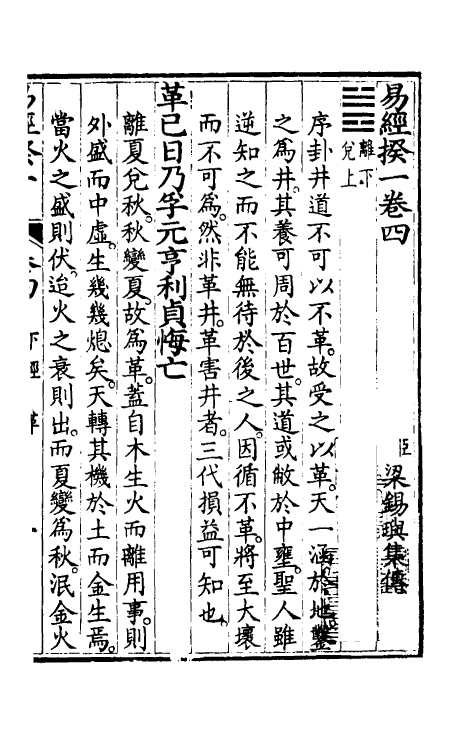 易經揆一卷四
臣梁錫璵集傳
離下
兌上
序卦井道不可以不革。故受之以革。天一涵於地鑿
之為井。其養可周於百世。其道或敝於中壅。聖人雖
逆知之而不能無待於後之人。因循不革。將至大壞
而不可為。然非革井。革害井者。三代損益可知也。
革己日乃孚元亨利貞悔亡
離夏兌秋。秋變夏。故為革。蓋自木生火而離用事。則
外盛而中虛。生幾幾熄矣。天轉其機於土而金生焉。
當火之盛則伏。迨火之衰則出。而夏變為秋。泯金火
下經 革